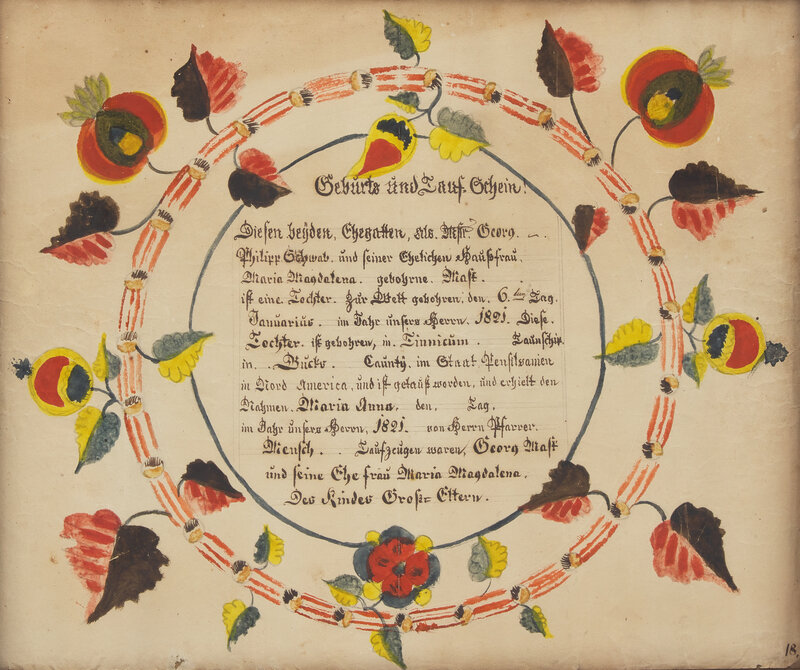 Geburts und Tauf-Schein!
Diesen beyden, Ehegatten, als. Mstr Georg
Philipp Schwab, und seiner Ehelichen Haußfrau.
Maria Magdalena. gebohrne. Mast.
ist eine Tochter. Zur Welt gebohren, den. 6.ten Tag.
Januarius. im Jahr unsers Herrn, 1821. Diese.
Tochter. ist gebohren, in. Tinnicum. Taunschip.
in. Bucks. Caunty, im Staat Pensilvanien
in Nord America, und ist getauft worden, und erhielt den
Nahmen. Maria Anna, den. Tag.
im Jahr unsers Herrn, 1821. von Herrn Pfarrer.
Mensch. Taufzeugen waren, Georg Mast
und seine Ehe frau Maria Magdalena.
Des Kindes Gross-Eltern.
18.